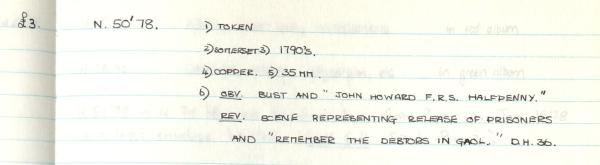 £3. N. 50'78. 1) TOKEN
2) SOMERSET 3) 1790's.
4) COPPER. 5) 35 MM.
6) OBV. BUST AND "JOHN HOWARD F.R.S. HALFPENNY."
REV. SCENE REPRESENTING RELEASE OF PRISONERS
AND "REMEMBER THE DEBTORS IN GAOL." D.H. 36.